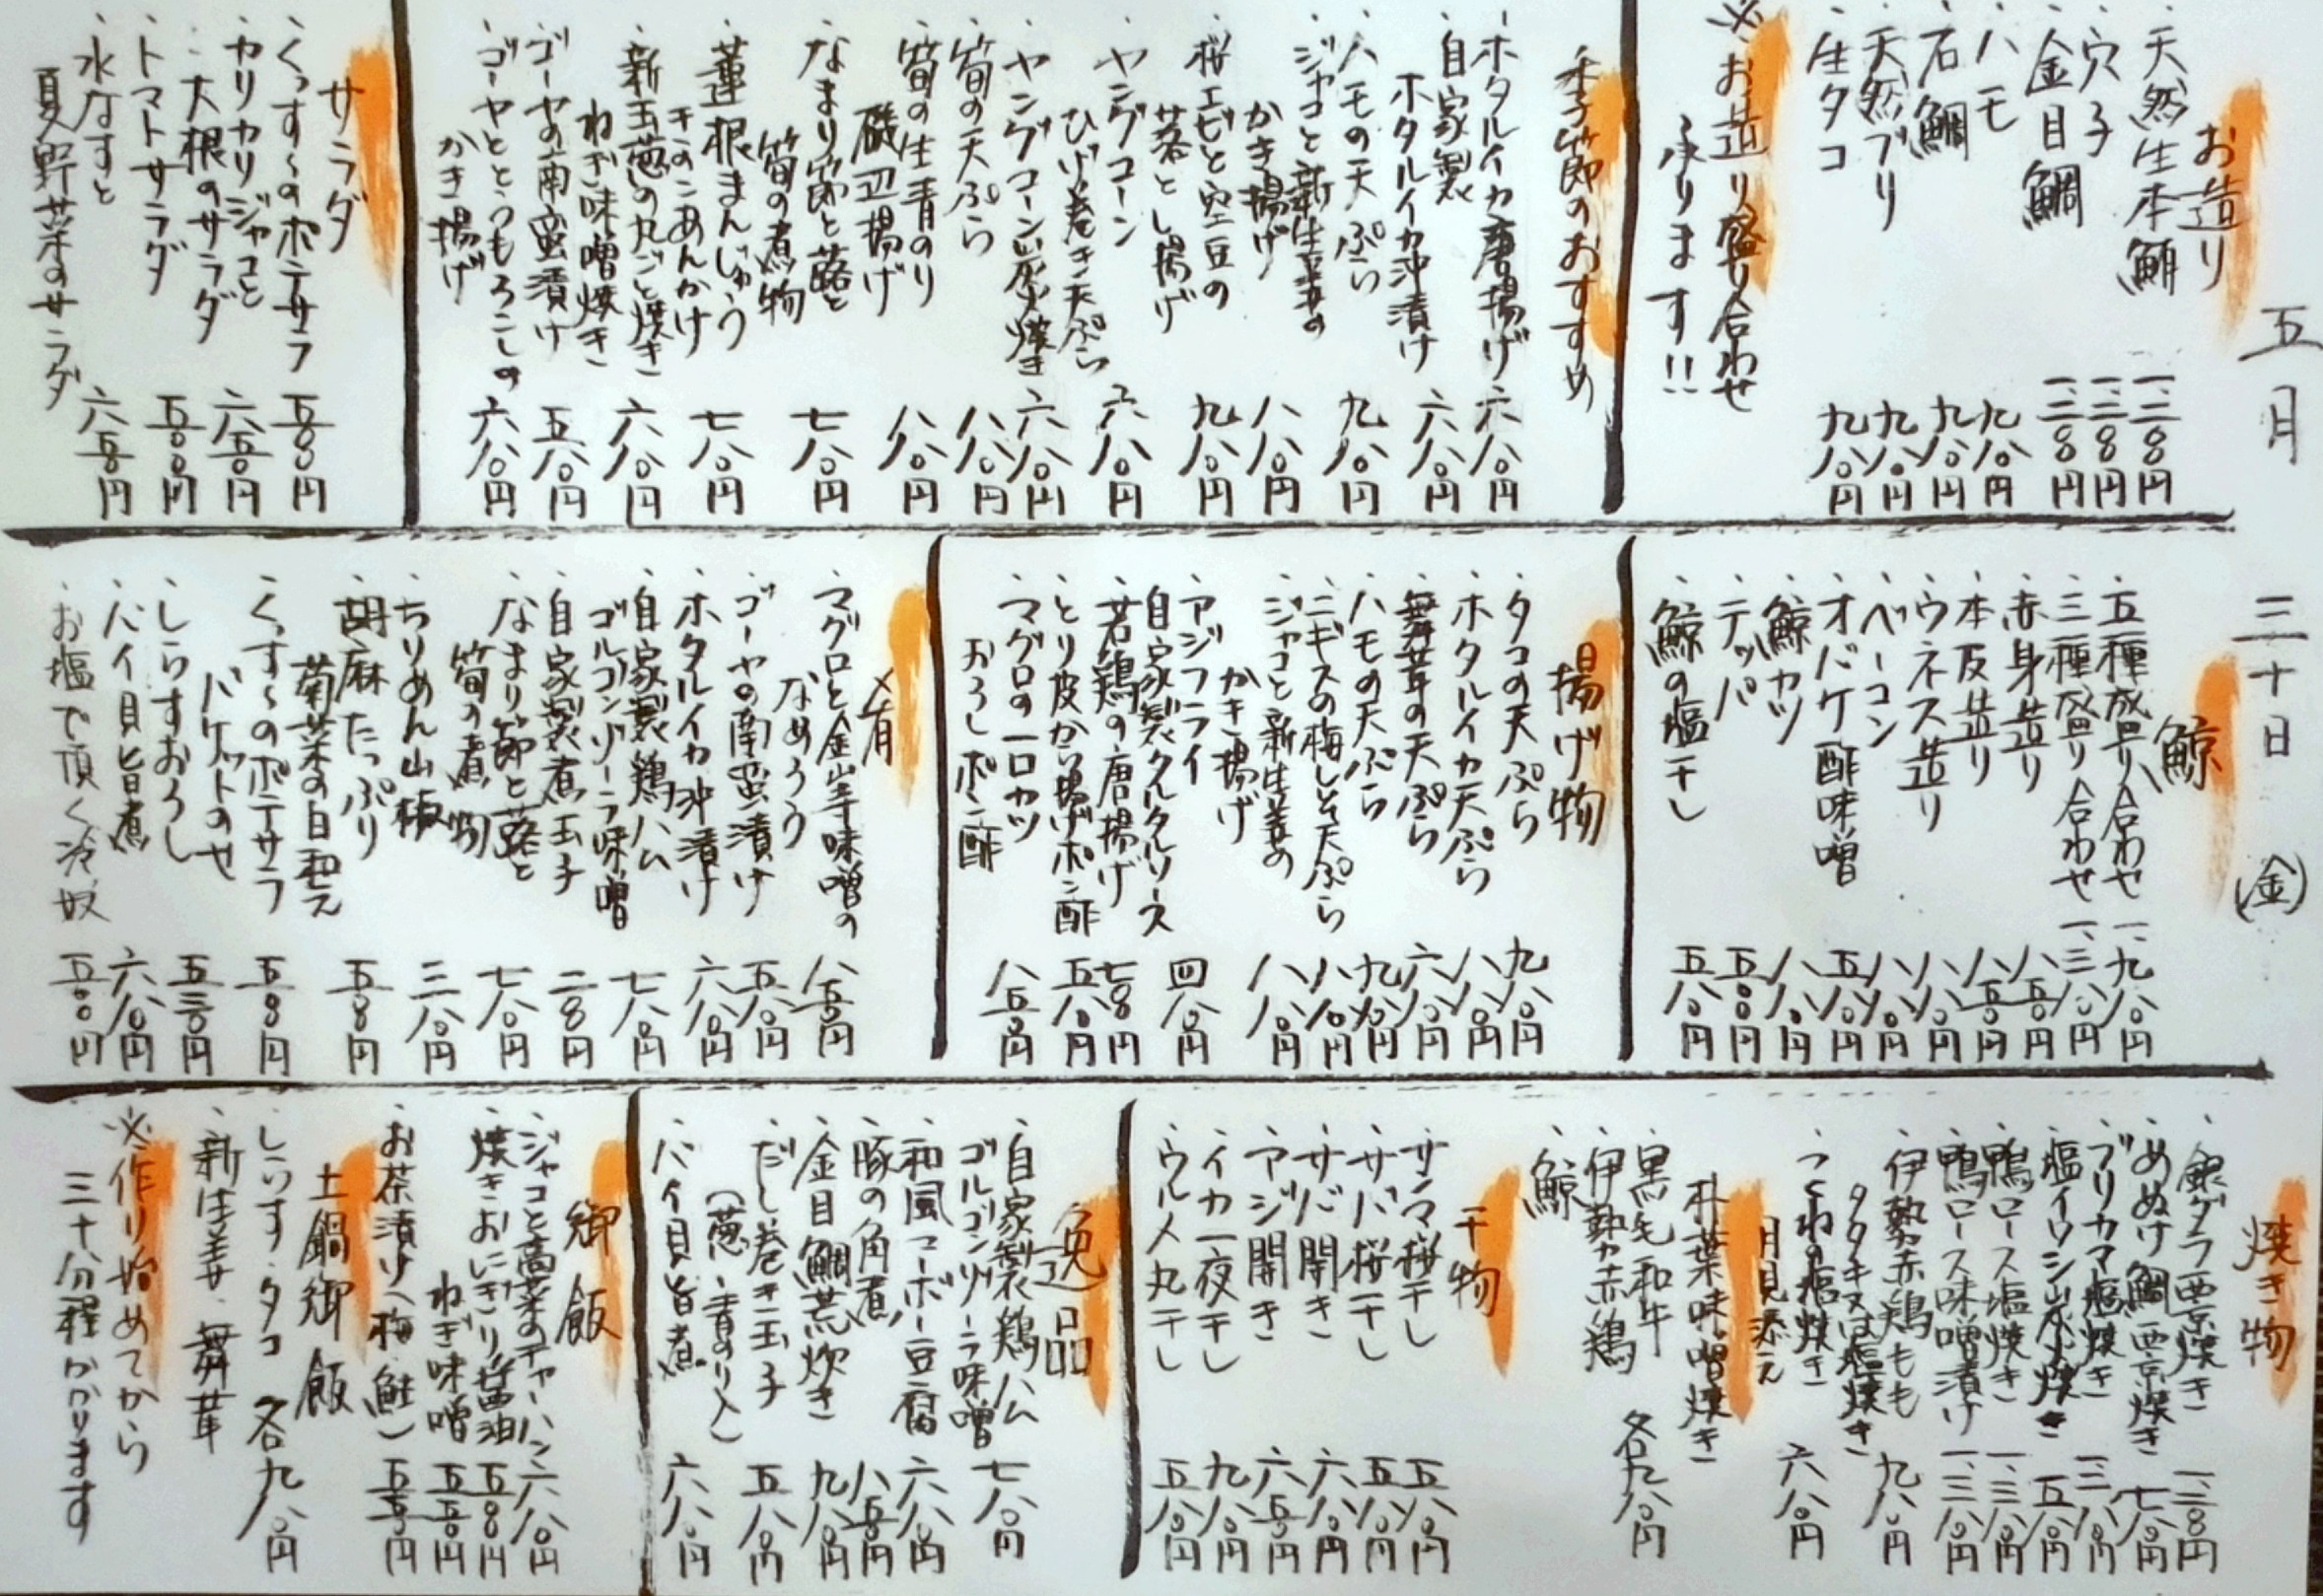 五月 三十日 (金)
お造り
・天然生本鮪 一、二〇〇円
・穴子 一、二〇〇円
・金目鯛 一、二〇〇円
・ハモ 九八〇円
・石鯛 九八〇円
・天然ブリ 九八〇円
・生タコ 九八〇円
※お造り盛り合わせ
承ります!!
季節のおすすめ
・ホタルイカ唐揚げ 六八〇円
・自家製
ホタルイカ沖漬け 六八〇円
・ハモの天ぷら 九八〇円
・ジャコと新生姜の
かき揚げ 八八〇円
・桜エビと空豆の
落とし揚げ 九八〇円
・ヤングコーン
ひげ巻き天ぷら 六八〇円
・ヤングコーン炭火焼き 六八〇円
・筍の天ぷら 八八〇円
・筍の生青のり
磯辺揚げ 八八〇円
・なまり節と蕗と
筍の煮物 七八〇円
・蓮根まんじゅう
きのこあんかけ 七八〇円
・新玉葱の丸ごと焼き
ねぎ味噌焼き 六八〇円
・ゴーヤの南蛮漬け 五八〇円
・ゴーヤととうもろこしの
かき揚げ 六八〇円
サラダ
・くっすぅのポテサラ 五〇〇円
・カリカリジャコと
大根のサラダ 六五〇円
・トマトサラダ 五〇〇円
・水なすと
夏野菜のサラダ 六五〇円
鯨
・五種盛り合わせ 一、九八〇円
・三種盛り合わせ 一、三八〇円
・赤身造り 八五〇円
・本皮造り 八五〇円
・ウネス造り 八八〇円
・ベーコン 八八〇円
・オバケ酢味噌 五八〇円
・鯨カツ 八八〇円
・テッパ 五〇〇円
・鯨の塩干し 五八〇円
揚げ物
・タコの天ぷら 九八〇円
・ホタルイカ天ぷら 八八〇円
・舞茸の天ぷら 六八〇円
・ハモの天ぷら 九八〇円
・ニギスの梅しそ天ぷら 八八〇円
・ジャコと新生姜の
かき揚げ 八八〇円
・アジフライ
自家製タルタルソース 四八〇円
・若鶏の唐揚げ 七〇〇円
・とり皮から揚げポン酢 五八〇円
・マグロの一口カツ
おろしポン酢 八五〇円
肴
・マグロと金山寺味噌の
なめろう 八五〇円
・ゴーヤの南蛮漬け 五八〇円
・ホタルイカ沖漬け 六八〇円
・自家製鶏ハム
ゴルゴンゾーラ味噌 七八〇円
・自家製煮玉子 二〇〇円
・なまり節と蕗と
筍の煮物 七八〇円
・ちりめん山椒 三八〇円
・胡麻たっぷり
菊菜の白和え 五〇〇円
・くっすぅのポテサラ
バケットのせ 五〇〇円
・しらすおろし 五三〇円
・バイ貝旨煮 六八〇円
・お塩で頂く冷奴 五〇〇円
焼き物
・銀ダラ西京焼き 一、三〇〇円
・めぬけ鯛西京焼き 七八〇円
・ブリカマ塩焼き 三八〇円
・塩イワシ炭火焼き 五八〇円
・鴨ロース塩焼き 一、三八〇円
・鴨ロース味噌漬け 一、三八〇円
・伊勢赤鶏もも
タタキ又は塩焼き 九八〇円
・つくねの塩焼き 六八〇円
月見添え
朴葉味噌焼き
・黒毛和牛
・伊勢赤鶏 各九八〇円
・鯨
干物
・サンマ桜干し 五八〇円
・サバ桜干し 五八〇円
・サバ開き 六八〇円
・アジ開き 六五〇円
・イカ一夜干し 九八〇円
・ウルメ丸干し 五八〇円
逸品
・自家製鶏ハム
ゴルゴンゾーラ味噌 七八〇円
・和風マーボー豆腐 六八〇円
・豚の角煮 八五〇円
・金目鯛荒炊き 九八〇円
・だし巻き玉子
(葱・青のり入) 五八〇円
・バイ貝旨煮 六八〇円
御飯
・ジャコと高菜のチャーハン 六八〇円
・焼きおにぎり醤油 五〇〇円
ねぎ味噌 五五〇円
・お茶漬け(梅・鮭) 五五〇円
土鍋御飯
・しらす・タコ 各九八〇円
・新生姜・舞茸
※作り始めてから
三十分程かかります